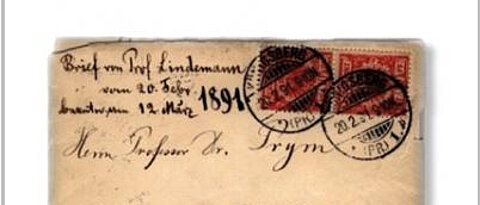 Brief von Prof Lindemann
vom 20. Febr.
beantw. am 12 März 1891
Herrn Professor Dr. Prym
20.2.91
(PR)
20.2.91
(PR) 1.